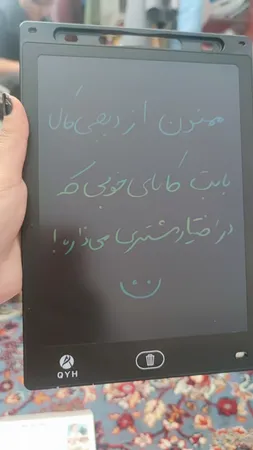 ممنون از دیجی کال
بابت کالای خوبی که
در اختیار مشتری می‌ذاره!
QYH